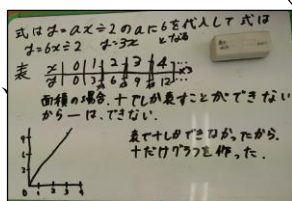 式は y=ax÷2 のaに6を代入して 式は
y=6x÷2 y=3x となる
表 x 0 1 2 3 4
y 0 3 6 9 12 …×3
面積の場合、+でしか表すことができない
から-は、できない。
表で+しかできなかったから、
+だけグラフを作った。
0 1 2 3 4